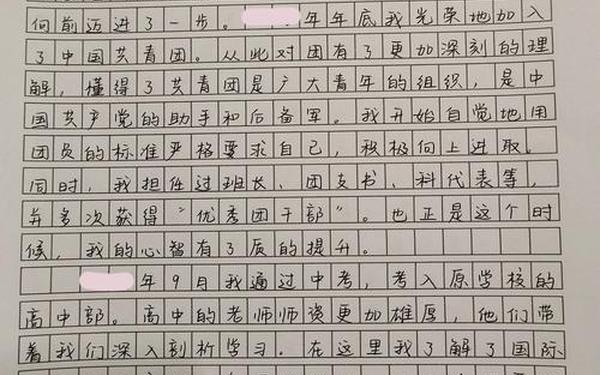 向前迈进了一步。年年底我光荣地加入
了中国共青团。从此对团有了更加深刻的理
解，懂得了共青团是广大青年的组织，是中
国共产党的助手和后备军。我开始自觉地用
团员的标准严格要求自己，积极向上进取。
同时，我担任过班长、团支书、科代表等，
并多次获得“优秀团干部”。也正是这个时
候，我的心智有了质的提升。
年9月我通过中考，考入原学校的
高中部。高中的老师师资更加雄厚，他们带
着我们深入剖析学习。在这里我了解了国际